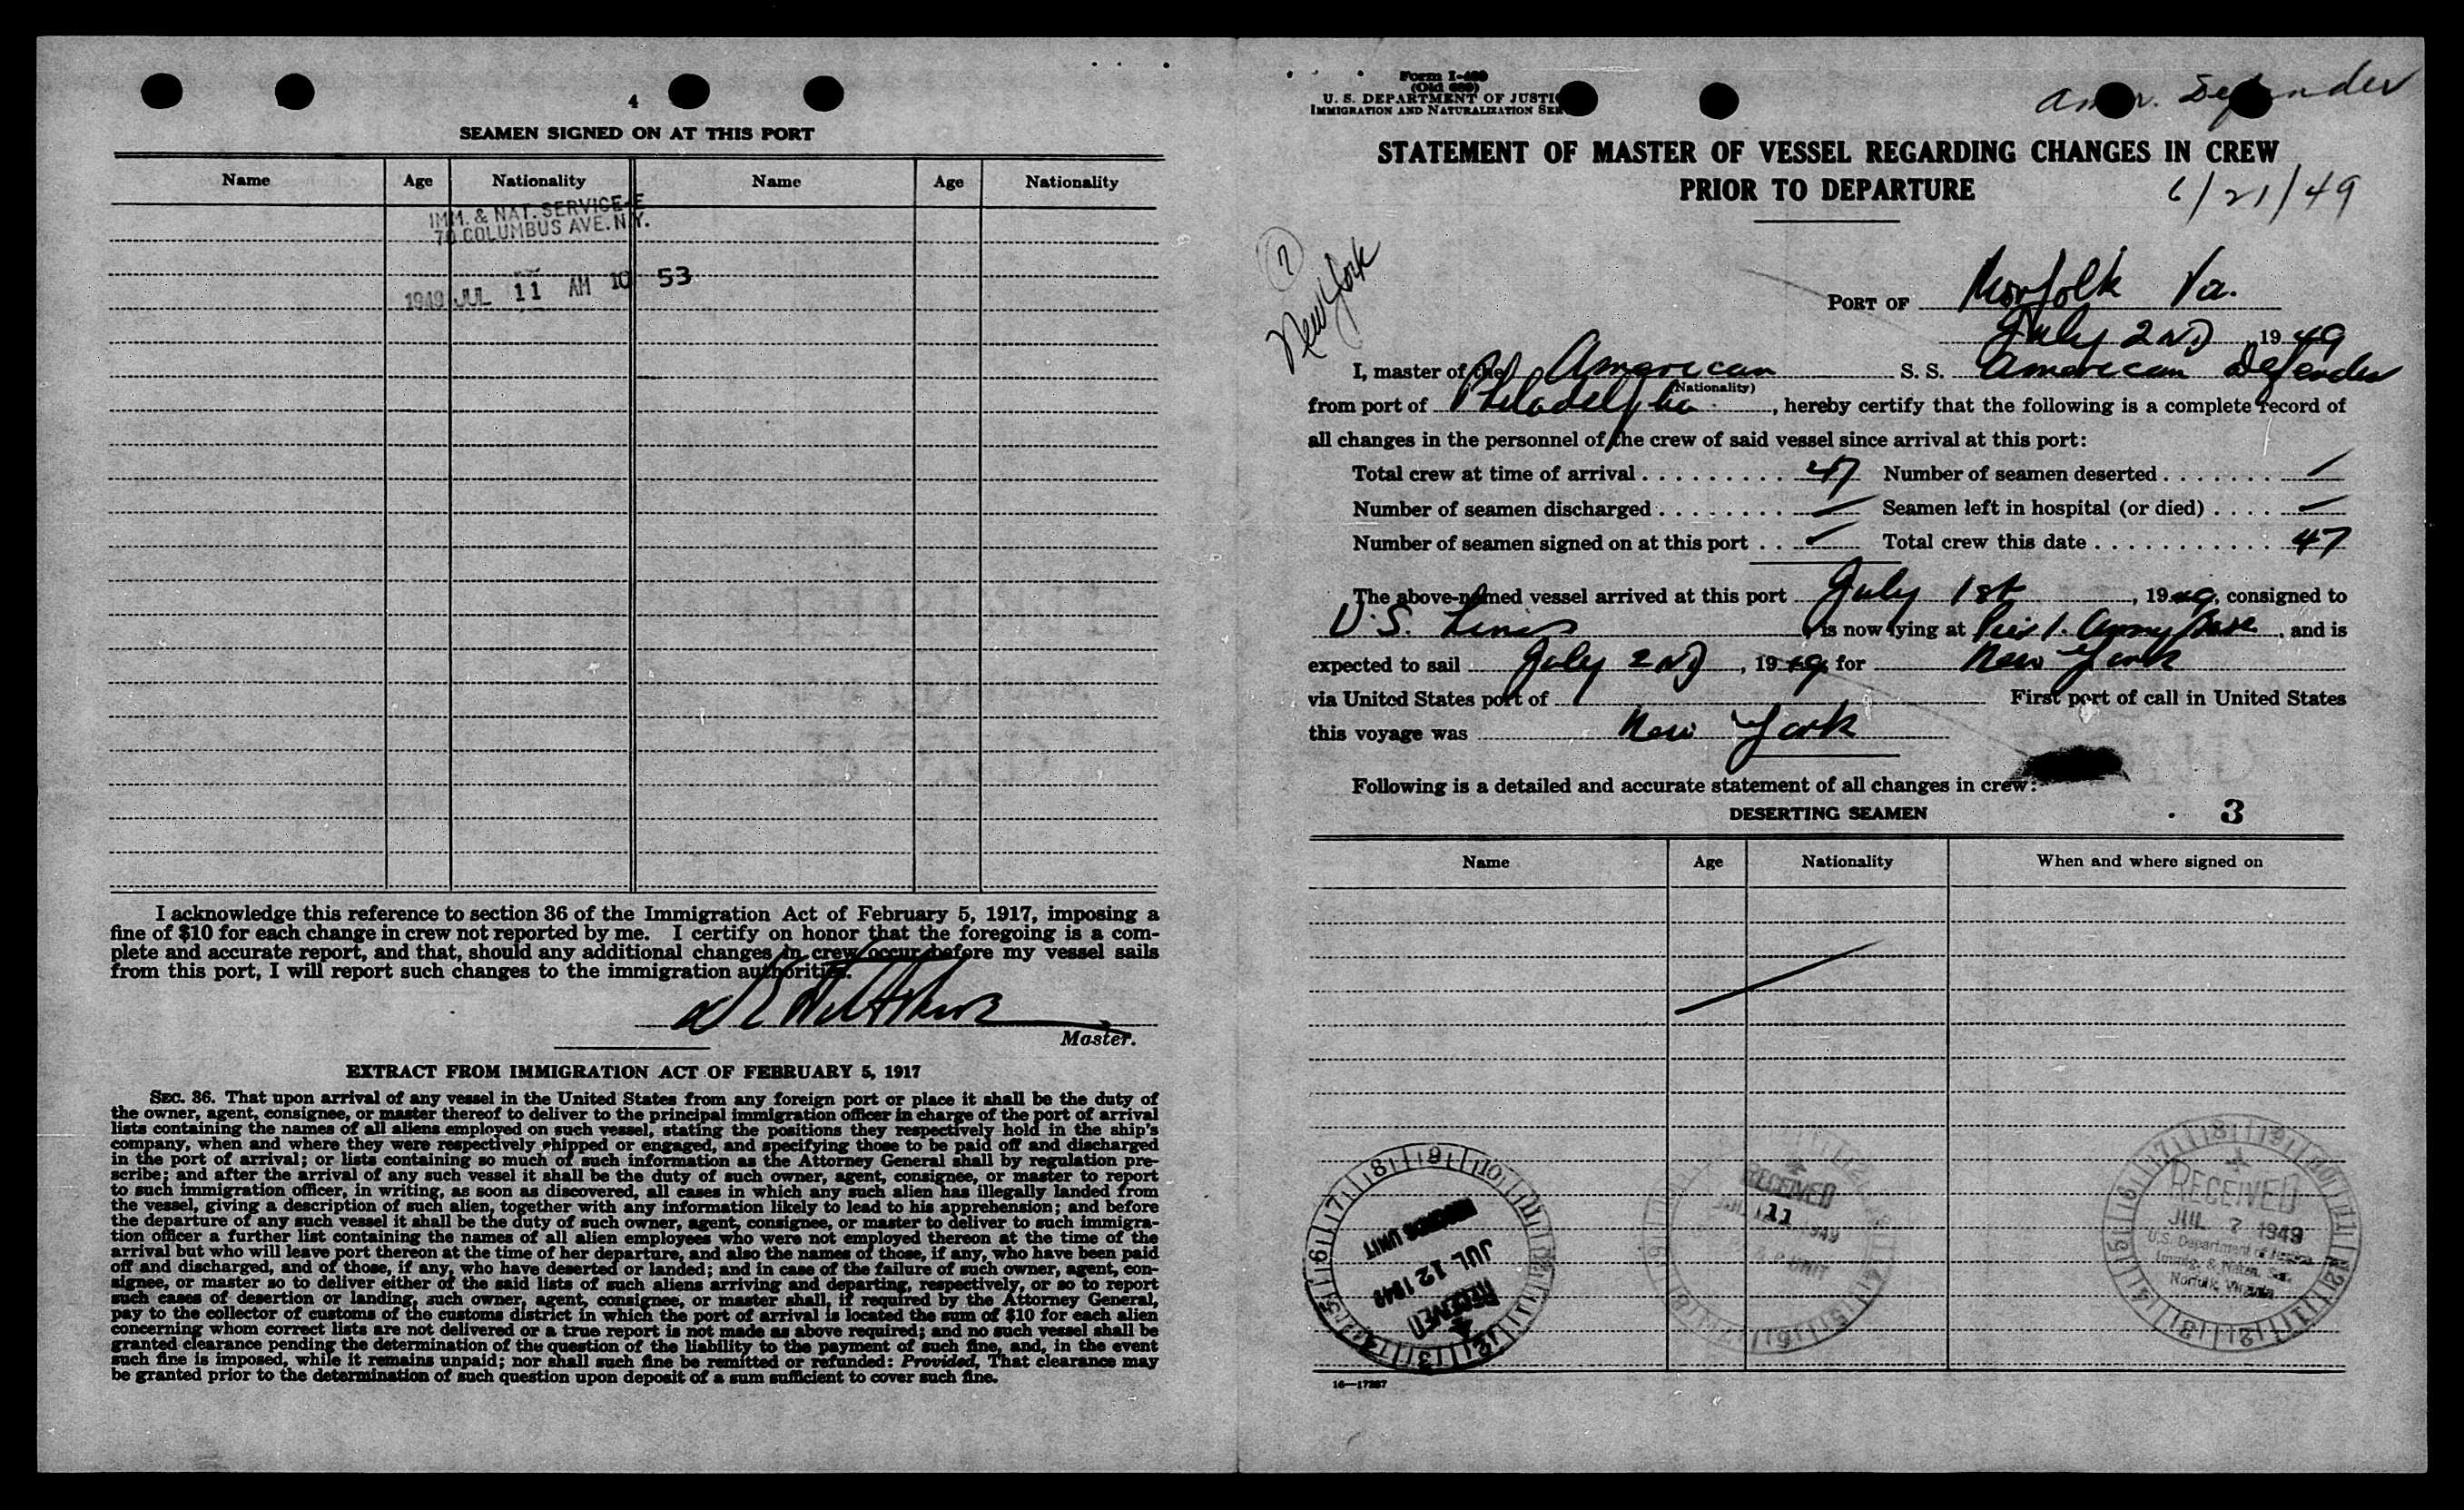 4
SEAMEN SIGNED ON AT THIS PORT
Name Age Nationality Name Age Nationality
IMM. & NAT. SERVICE-E
70 COLUMBUS AVE. N.Y.
1949 JUL 11 AM 10 53
I acknowledge this reference to section 36 of the Immigration Act of February 5, 1917, imposing a
fine of $10 for each change in crew not reported by me. I certify on honor that the foregoing is a com-
plete and accurate report, and that, should any additional changes in crew occur before my vessel sails
from this port, I will report such changes to the immigration authorities.
Master.
EXTRACT FROM IMMIGRATION ACT OF FEBRUARY 5, 1917
SEC. 36. That upon arrival of any vessel in the United States from any foreign port or place it shall be the duty of
the owner, agent, consignee, or master thereof to deliver to the principal immigration officer in charge of the port of arrival
lists containing the names of all aliens employed on such vessel, stating the positions they respectively hold in the ship's
company, when and where they were respectively shipped or engaged, and specifying those to be paid off and discharged
in the port of arrival; or lists containing so much of such information as the Attorney General shall by regulation pre-
scribe; and after the arrival of any such vessel it shall be the duty of such owner, agent, consignee, or master to report
to such immigration officer, in writing, as soon as discovered, all cases in which any such alien has illegally landed from
the vessel, giving a description of such alien, together with any information likely to lead to his apprehension; and before
the departure of any such vessel it shall be the duty of such owner, agent, consignee, or master to deliver to such immigra-
tion officer a further list containing the names of all alien employees who were not employed thereon at the time of the
arrival but who will leave port thereon at the time of her departure, and also the names of those, if any, who have been paid
off and discharged, and of those, if any, who have deserted or landed; and in case of the failure of such owner, agent, con-
signee, or master so to deliver either of the said lists of such aliens arriving and departing, respectively, or so to report
such cases of desertion or landing, such owner, agent, consignee, or master shall, if required by the Attorney General,
pay to the collector of customs of the customs district in which the port of arrival is located the sum of $10 for each alien
concerning whom correct lists are not delivered or a true report is not made as above required; and no such vessel shall be
granted clearance pending the determination of the question of the liability to the payment of such fine, and, in the event
such fine is imposed, while it remains unpaid; nor shall such fine be remitted or refunded: Provided, That clearance may
be granted prior to the determination of such question upon deposit of a sum sufficient to cover such fine.
Form I-489
(Old 689)
U. S. DEPARTMENT OF JUSTI
IMMIGRATION AND NATURALIZATION SER
Amer. Defender
STATEMENT OF MASTER OF VESSEL REGARDING CHANGES IN CREW
PRIOR TO DEPARTURE
6/21/49
New York
PORT OF Norfolk Va.
July 2ND, 1949
I, master of the American S. S. American Defender
(Nationality)
from port of Philadelphia, hereby certify that the following is a complete record of
all changes in the personnel of the crew of said vessel since arrival at this port:
Total crew at time of arrival 47 Number of seamen deserted /
Number of seamen discharged / Seamen left in hospital (or died) /
Number of seamen signed on at this port / Total crew this date 47
The above-named vessel arrived at this port July 1st, 1949, consigned to
U.S. Lines, is now lying at Pier 1. Army Base, and is
expected to sail July 2ND, 1949 for New York
via United States port of First port of call in United States
this voyage was New York
Following is a detailed and accurate statement of all changes in crew:
DESERTING SEAMEN 3
Name Age Nationality When and where signed on
RECEIVED
JUL 12 1949
RECORDS UNIT
RECEIVED
JUL 11 1949
UNIT
RECEIVED
JUL 7 1949
U.S. Department of Justice
Immig. & Natzn. Ser.
Norfolk, Virginia
16—17287